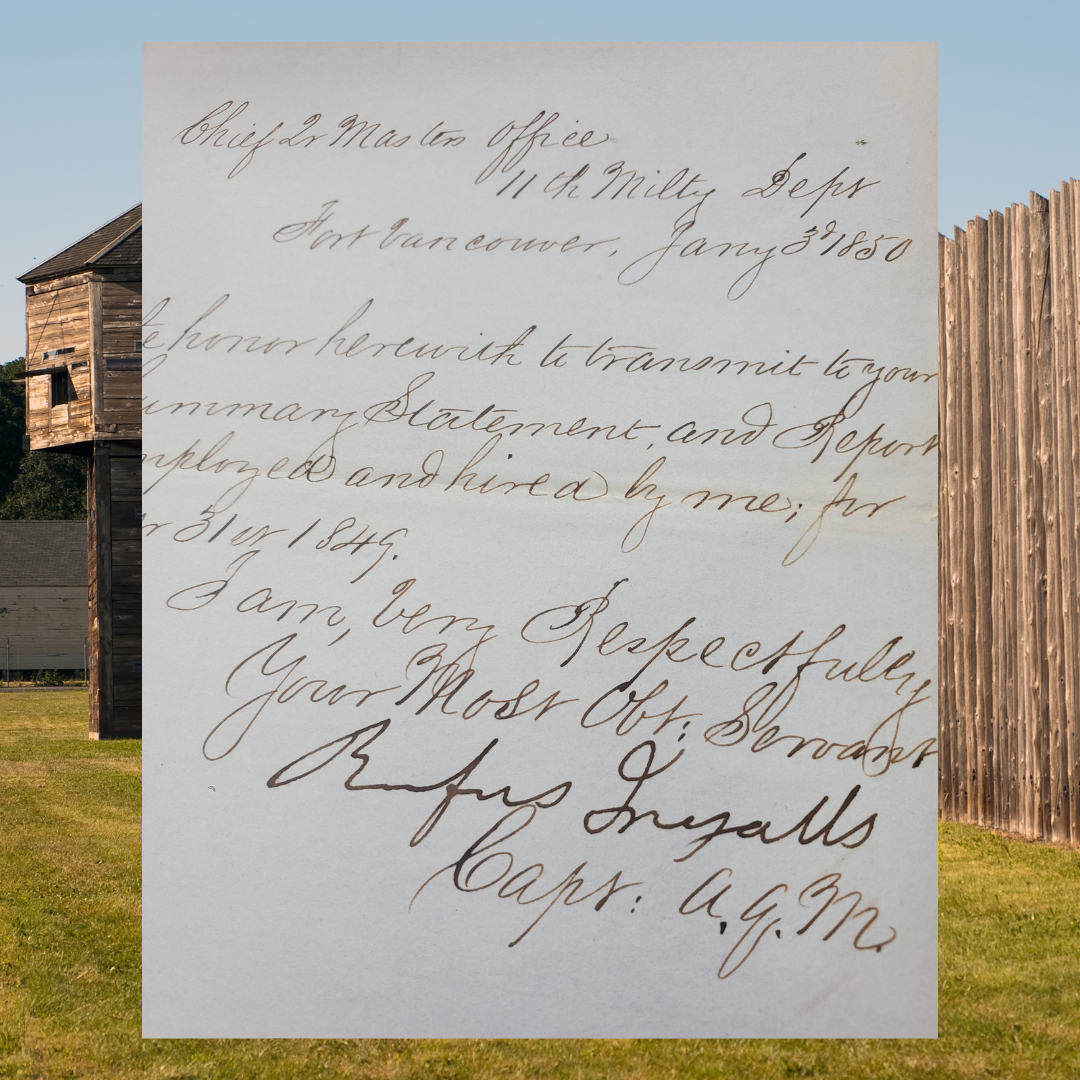 Chief Qr Masters Office
11th Milty Dept
Fort Vancouver, Jany 3d 1850
e honor herewith to transmit to your
ummary Statement, and Report
mployed and hired by me; for
r 31st 1849.
I am, Very Respectfully
Your Most Obt: Servant
Rufus Ingalls
Capt: A.Q.M.